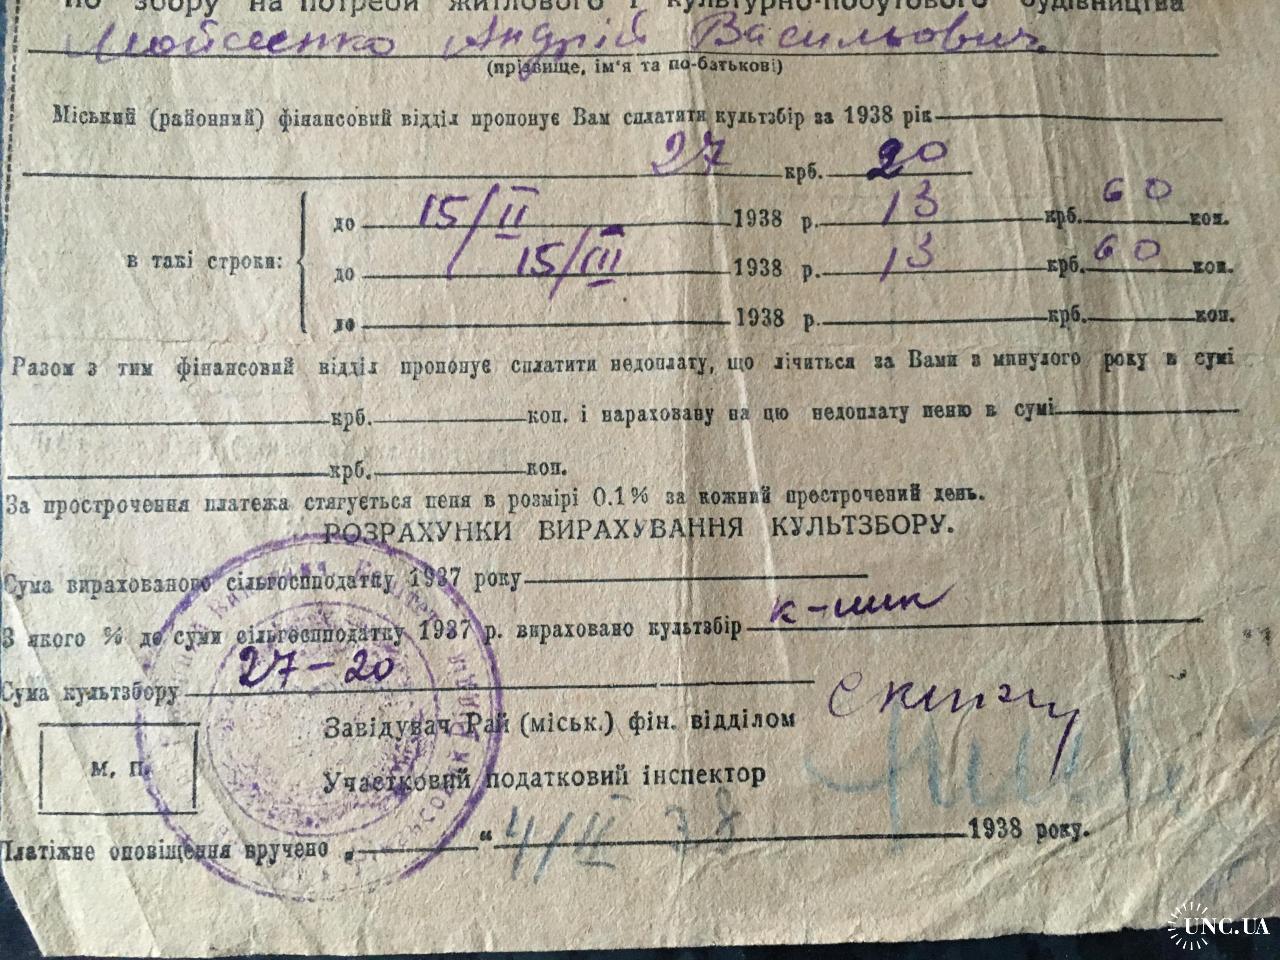 по збору на потреби житлового і культурно-побутового будівництва
Мойсеенко Андрій Васильович
(прізвище, ім'я та по-батькові)
Міський (районний) фінансовий відділ пропонує Вам сплатити культзбір за 1938 рік
27 крб. 20
до 15/II 1938 р. 13 крб. 60 коп.
в такі строки:
до 15/III 1938 р. 13 крб. 60 коп.
до 1938 р. крб. коп.
Разом з тим фінансовий відділ пропонує сплатити недоплату, що лічиться за Вами з минулого року в сумі
крб. коп. і нараховану на цю недоплату пеню в сумі
крб. коп.
За прострочення платежа стягується пеня в розмірі 0.1% за кожний прострочений день.
РОЗРАХУНКИ ВИРАХУВАННЯ КУЛЬТЗБОРУ.
Сума вирахованого сільгоспподатку 1937 року
З якого % до суми сільгоспподатку 1937 р. вираховано культзбір
Сума культзбору 27-20
Завідувач Рай (міськ.) фін. відділом
М. П.
Участковий податковий інспектор
Платіжне оповіщення вручено „ “ 4/II 38 1938 року.
UNC.UA